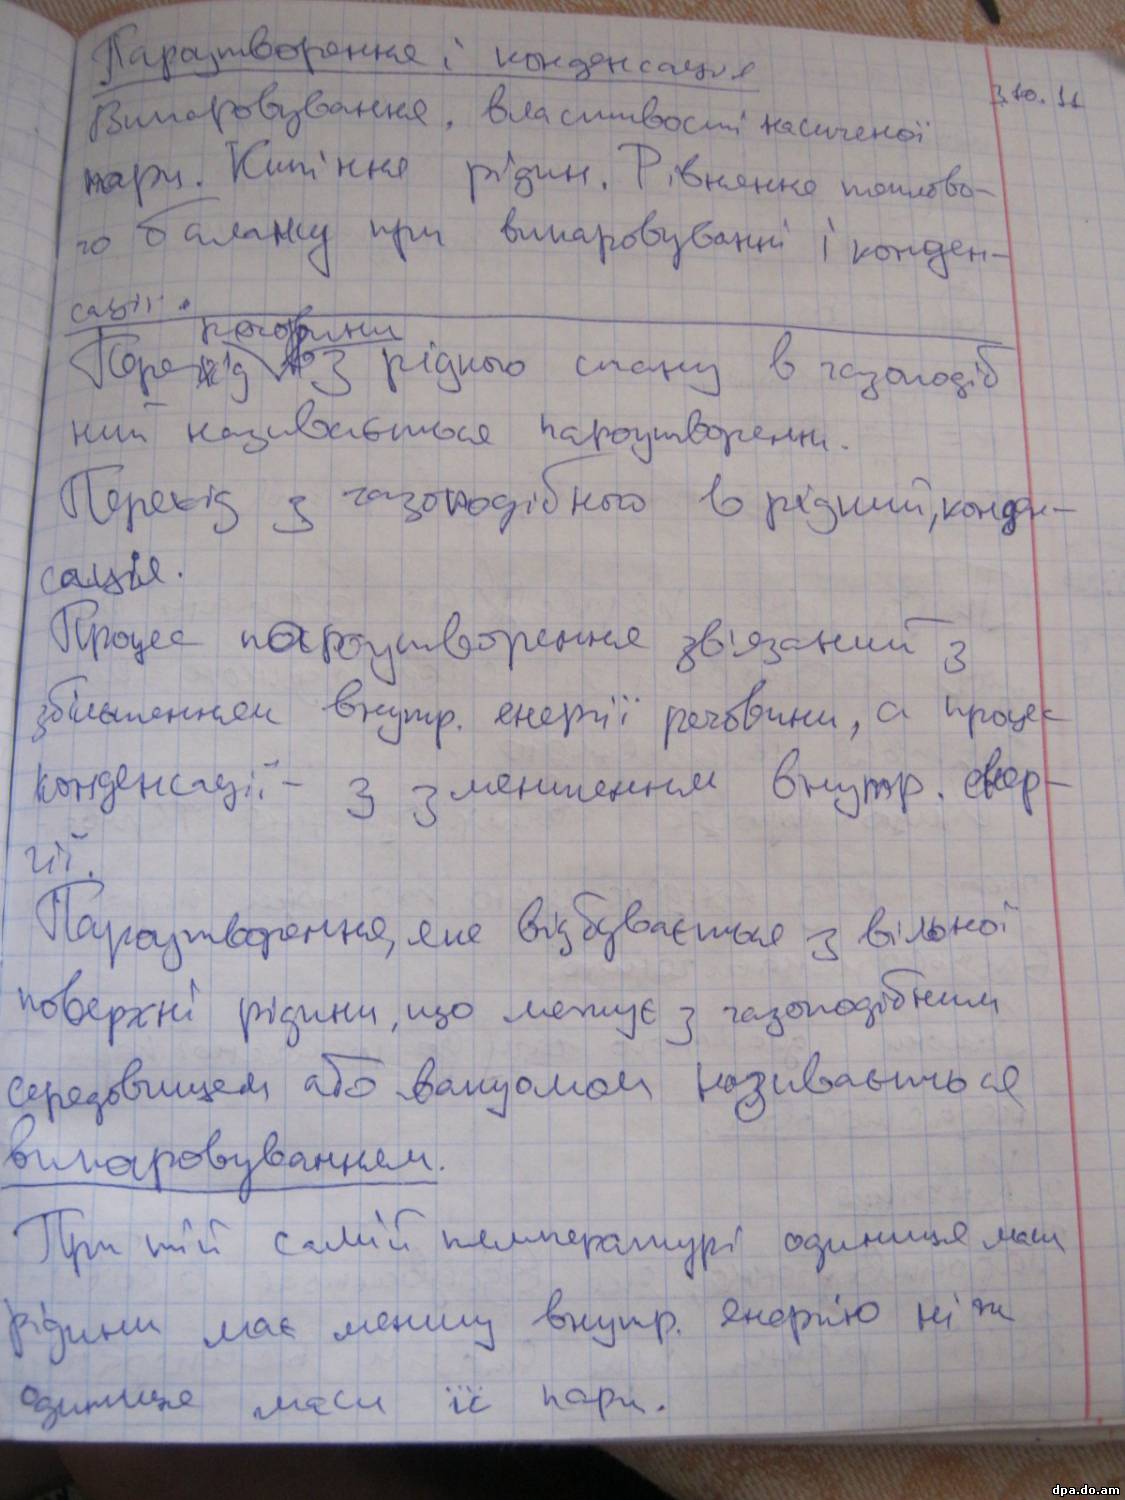 Пароутворення і конденсація
3.10.11
Випаровування, властивості насиченої
пари. Кипіння рідин. Рівняння теплово-
го балансу при випаровуванні і конден-
сації.
речовини
Перехід з рідного стану в газоподіб
ний називається пароутворенн.
Перехід з газоподібного в рідний, конден-
сація.
Процес пароутворення звязаний з
збільшенням внутр. енергії речовини, а процес
конденсації - з зменшенням внутр. енер-
гії.
Пароутворення, яке відбувається з вільної
поверхні рідини, що межує з газоподібним
середовищем або вакуомом називається
випаровуванням.
При тій самій температурі одиниця маси
рідини має меншу внутр. енергію ніж
одиниця маси її пари.
dpa.do.am